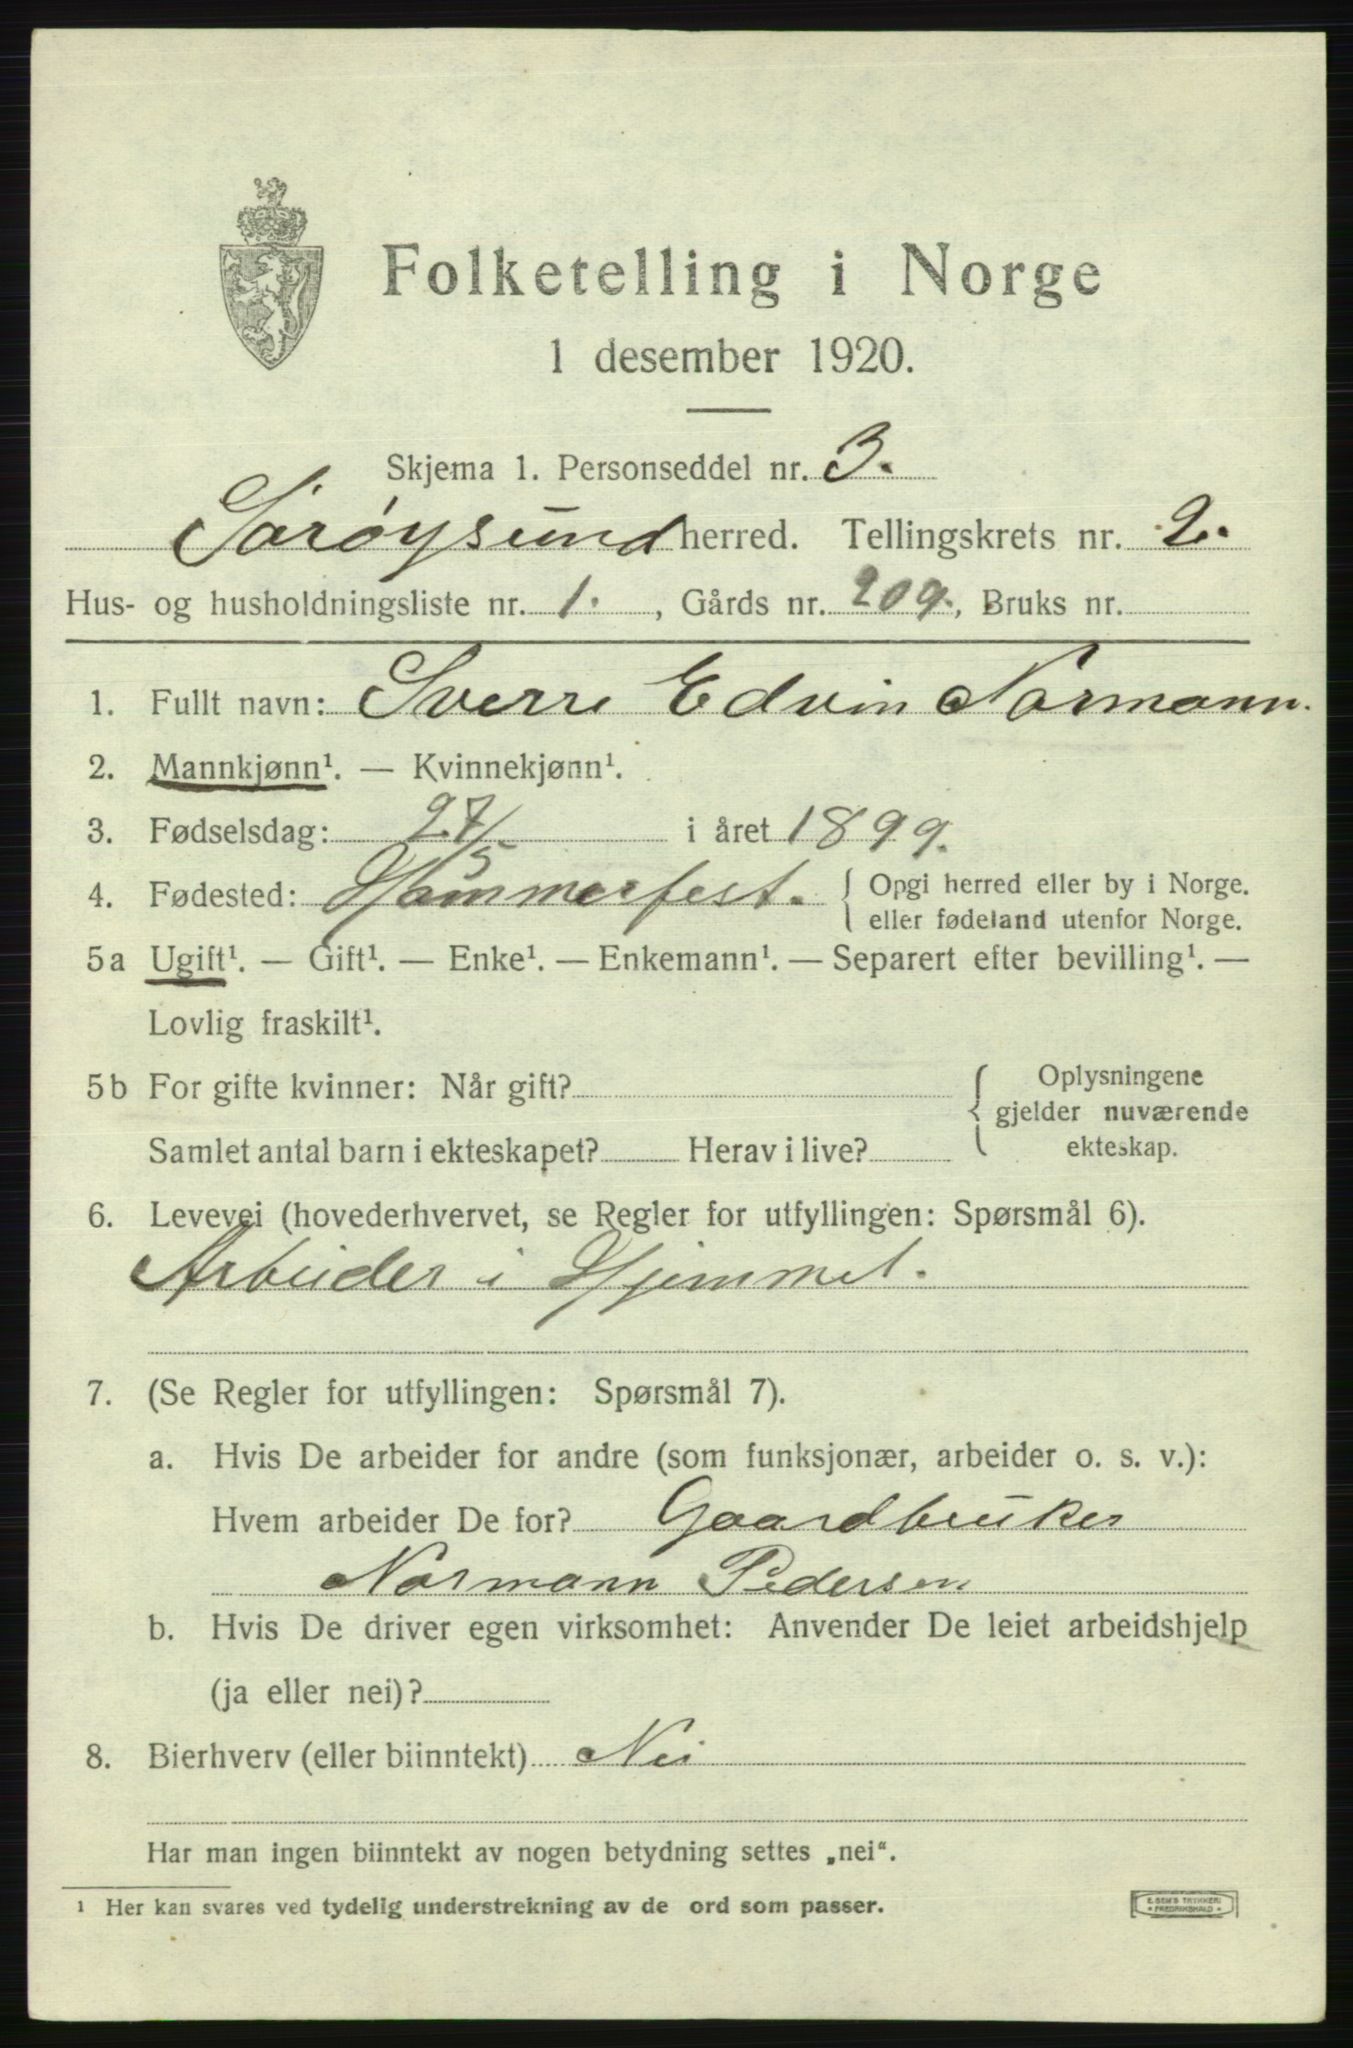 Folketelling i Norge
1 desember 1920.
Skjema 1. Personseddel nr. 3.
Sørøysund herred. Tellingskrets nr. 2.
Hus- og husholdningsliste nr. 1. , Gårds nr. 209., Bruks nr.
1. Fullt navn: Sverre Edvin Normann.
2. Mannkjønn¹. — Kvinnekjønn¹.
3. Fødselsdag: 27/5 i året 1899.
4. Fødested: Hammerfest. { Opgi herred eller by i Norge.
eller fødeland utenfor Norge.
5a Ugift¹. — Gift¹. — Enke¹. — Enkemann¹. — Separert efter bevilling¹. —
Lovlig fraskilt¹.
5b For gifte kvinner: Når gift? { Oplysningene
gjelder nuværende
Samlet antal barn i ekteskapet? Herav i live? ekteskap.
6. Levevei (hovederhvervet, se Regler for utfyllingen: Spørsmål 6).
Arbeider i Hjemmet.
7. (Se Regler for utfyllingen: Spørsmål 7).
a. Hvis De arbeider for andre (som funksjonær, arbeider o. s. v.):
Hvem arbeider De for? Gaardbruker
Normann Pedersen
b. Hvis De driver egen virksomhet: Anvender De leiet arbeidshjelp
(ja eller nei)?
8. Bierhverv (eller biinntekt) Nei
Har man ingen biinntekt av nogen betydning settes „nei“.
¹ Her kan svares ved tydelig understrekning av de ord som passer.
E. SEM'S TRYKKERI
• FREDRIKSHALD •